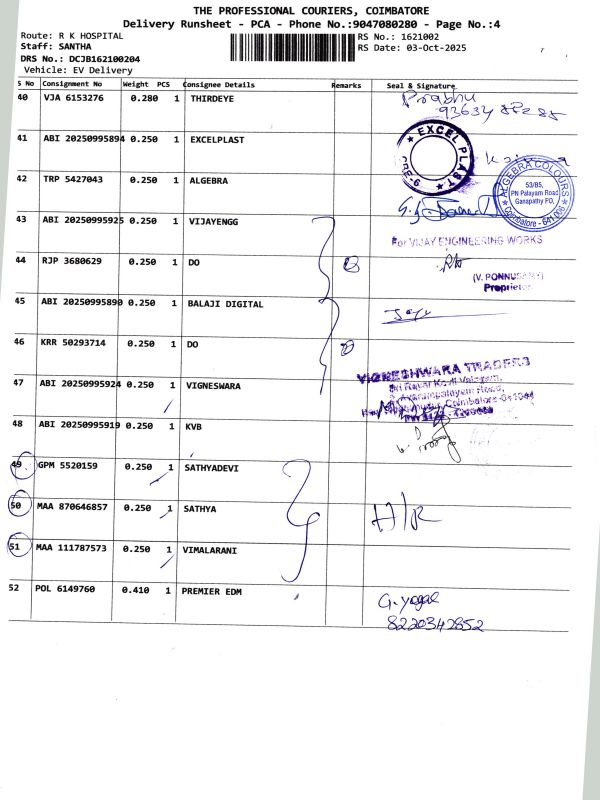 THE PROFESSIONAL COURIERS, COIMBATORE
Delivery Runsheet - PCA - Phone No.:9047080280 - Page No.:4
Route: R K HOSPITAL
RS No.: 1621002
Staff: SANTHA
RS Date: 03-Oct-2025
DRS No.: DCJB162100204
Vehicle: EV Delivery
S No Consignment No Weight PCS Consignee Details Remarks Seal & Signature
40 VJA 6153276 0.280 1 THIRDEYE
Prabhu
41 ABI 20250995894 0.250 1 EXCELPLAST
EXCEL PLAST
CBE-6
42 TRP 5427043 0.250 1 ALGEBRA
ALGEBRA COLOURS
53/B5,
PN Palayam Road
Ganapathy PO,
Coimbatore - 641 006
43 ABI 20250995925 0.250 1 VIJAYENGG
For VIJAY ENGINEERING WORKS
44 RJP 3680629 0.250 1 DO
(V. PONNUSAMY)
Proprietor
45 ABI 20250995890 0.250 1 BALAJI DIGITAL
46 KRR 50293714 0.250 1 DO
47 ABI 20250995924 0.250 1 VIGNESWARA
VIGNESHWARA TRADERS
48 ABI 20250995919 0.250 1 KVB
49 GPM 5520159 0.250 1 SATHYADEVI
50 MAA 870646857 0.250 1 SATHYA
51 MAA 111787573 0.250 1 VIMALARANI
52 POL 6149760 0.410 1 PREMIER EDM
G. yogal
8220342852